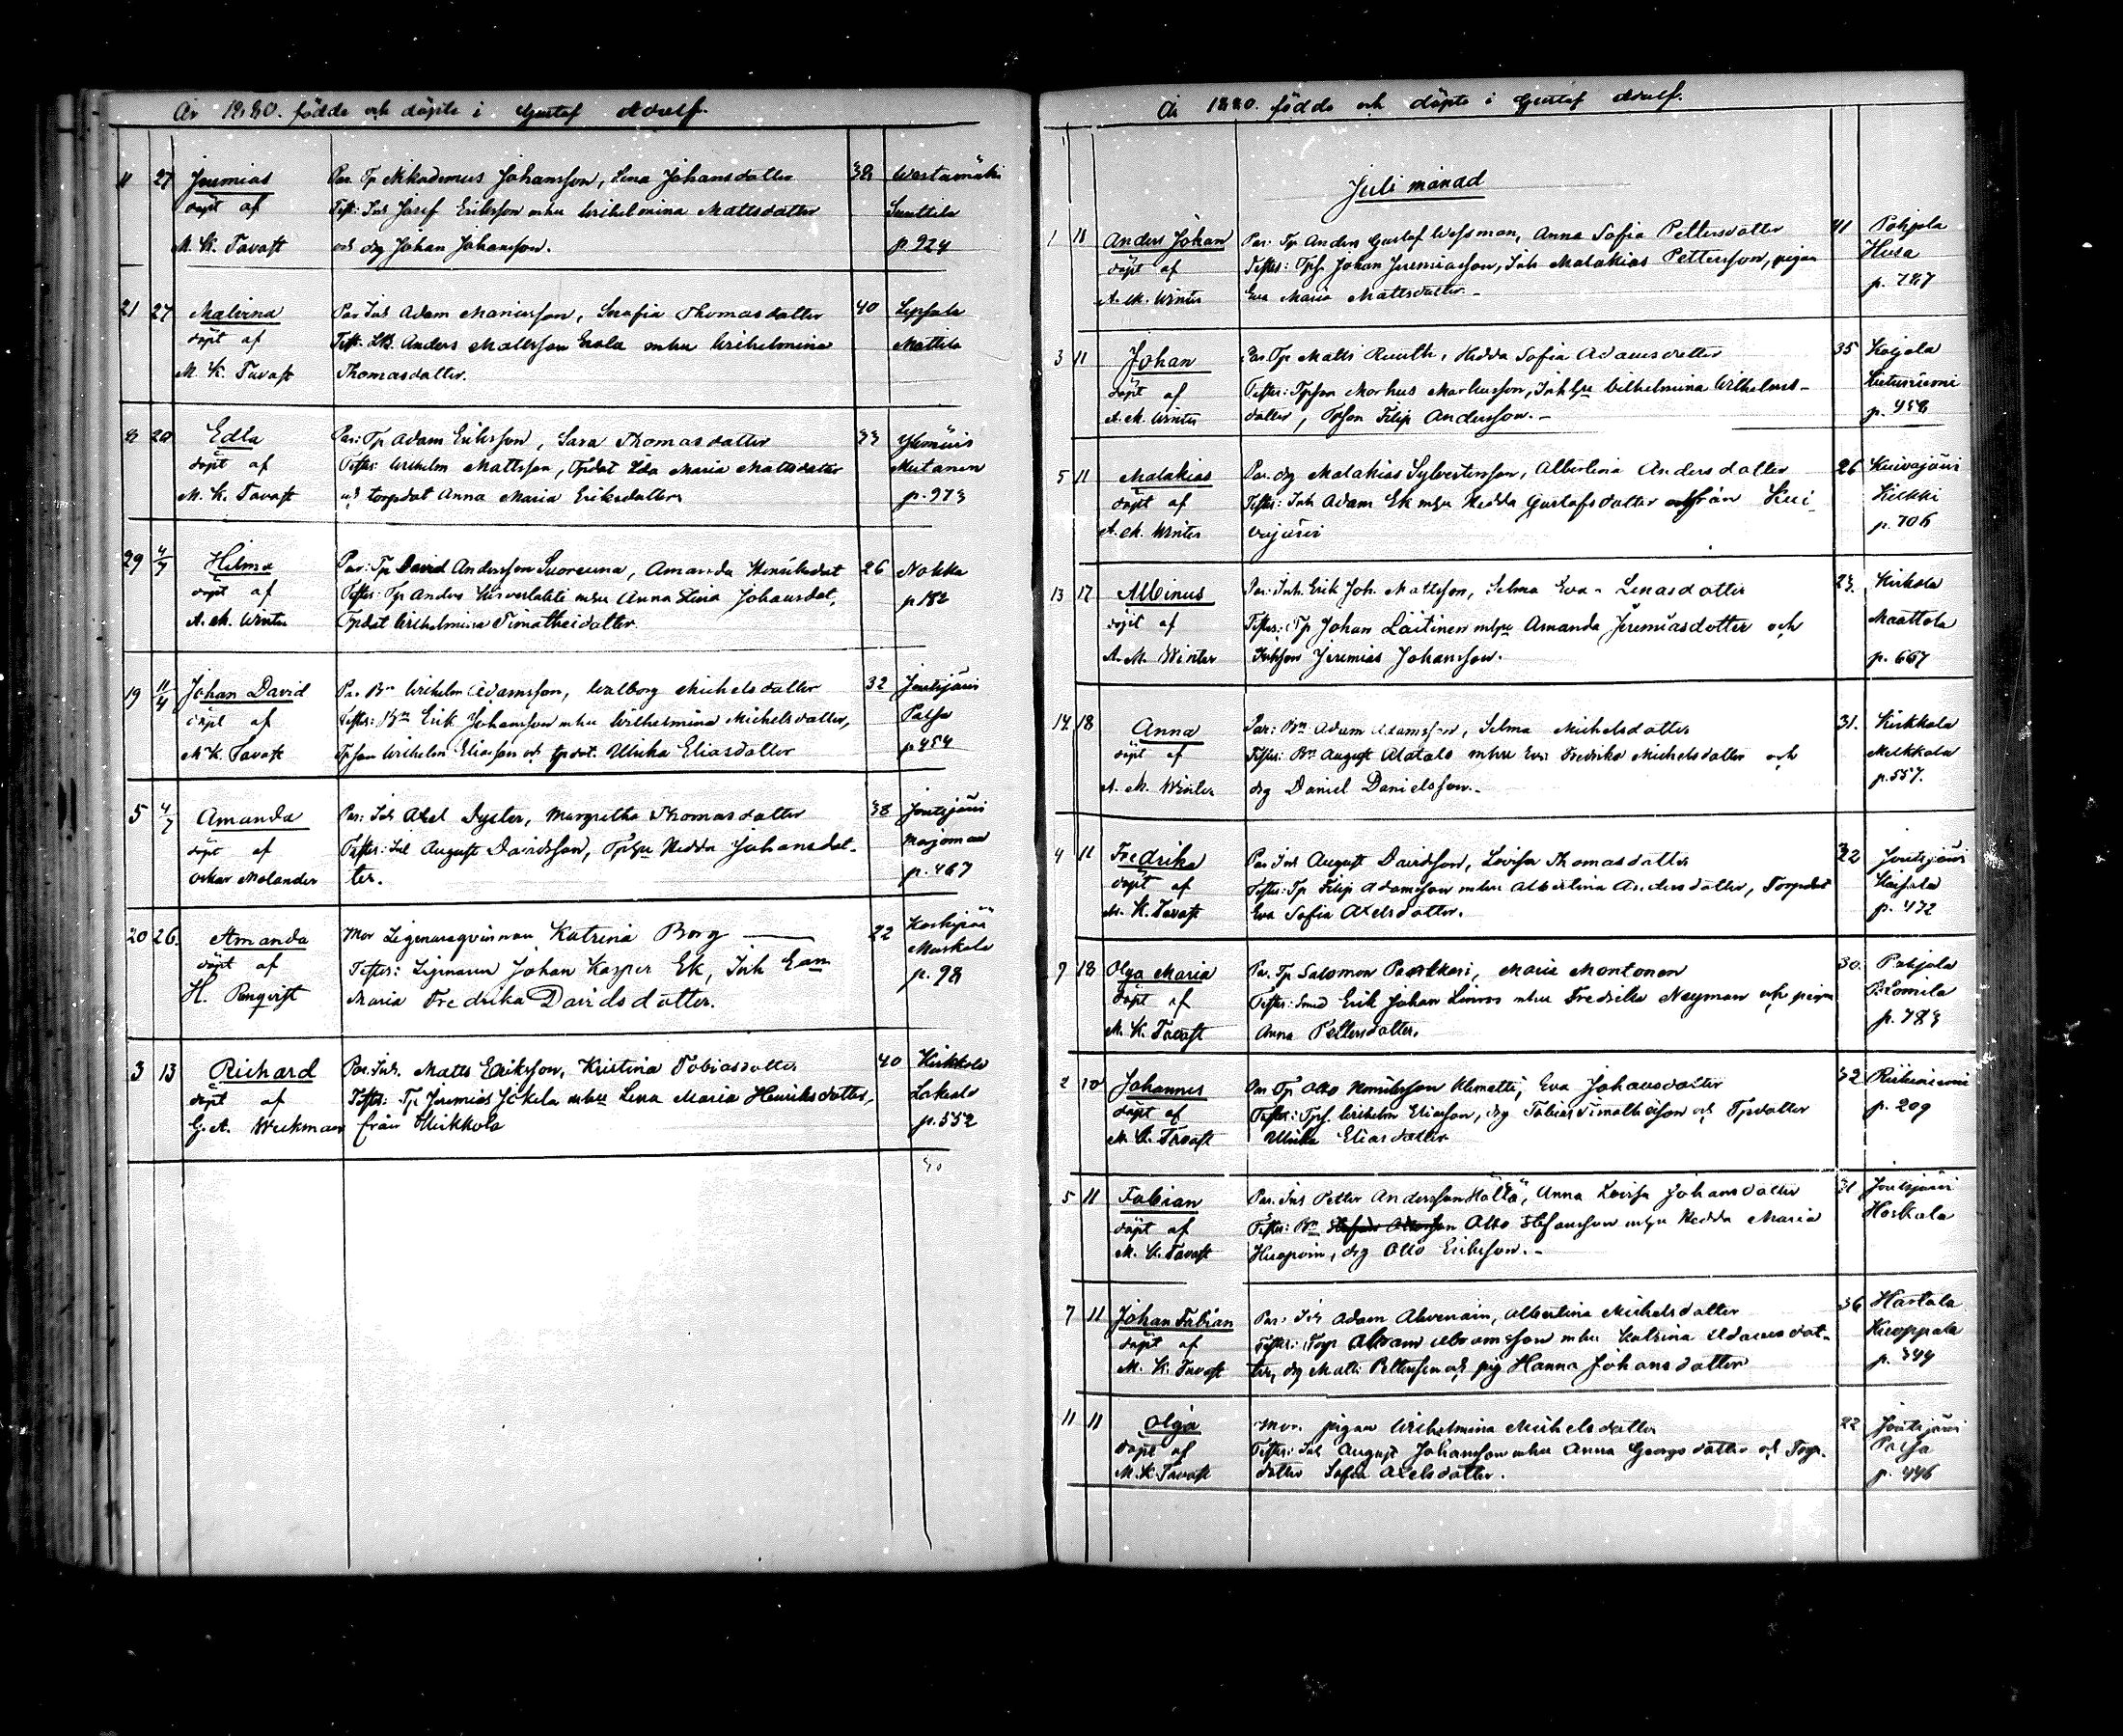 År 1880. födde och döpte i Gustaf Adolf.
11 27 Jeremias Par. Tp Nikodemus Johansson, Lena Johansdotter 38
döpt af Test: Inh Josef Eriksson mhu Wilhelmina Mattsdotter
M. K. Tavast och dg Johan Johansson. p. 924
21 27 Malvina Par Inh Adam Mariasson, Serafia Thomasdotter 40
döpt af Test. Anders Mattsson mhu Wilhelmina Mattila
M. K. Tavast Thomasdotter.
8 20 Edla Par: Tp Adam Eriksson, Sara Thomasdotter 33
döpt af Testes: Wilhelm Mattsson, Tpdot Ida Maria Mattsdotter Mutanen
M. K. Tavast och torpdot Anna Maria Eriksdotter p. 973
29 4/7 Hilma Par: Tp David Andersson Suoranna, Amanda Henriksdot 26 Nokka
döpt af Testes: Tp Anders mhu Anna Stina Johansdot, p 182
A. M. Winter Tpdot Wilhelmina Timotheidotter
19 11/4 Johan David Par. Bn Wilhelm Adamsson, Walborg Michelsdotter 32 Joutsjärvi
döpt af Testes: Bn Erik Johansson mhu Wilhelmina Michelsdotter, Palsa
M. K. Tavast Tpson Wilhelm Eliasson och tpdot. Ulrika Eliasdotter p. 454
5 4/7 Amanda Par: Inh Axel Dyster, Margretha Thomasdotter 38 Joutsjärvi
döpt af Testes: Inh August Davidsson, Tphu Hedda Johansdot-
Oskar Melander ter. p. 467
20 26 Amanda Mor Legenaraqvinnan Katrina Borg 22
döpt af Testes: Johan Kasper Ek, Inh Eam
H. Renqvist Maria Fredrika Davidsdotter. p. 98
3 13 Richard Par. Inh. Matts Eriksson, Kristina Tobiasdotter 40 Kirkkola
döpt af Testes: Tp Jeremias Jokela mhu Lena Maria Henriksdotter,
G. A. Weckman från Kirkkola p. 552
År 1880. födde och döpte i Gustaf Adolf.
Juli månad
1 18 Anders Johan Par: Tp Anders Gustaf Wessman, Anna Sofia Pettersdotter 41 Pohjola
döpt af Testes: Tps. Johan Jeremiasson, Inh Malakias Pettersson, pigan
A. M. Winter Eva Maria Mattsdotter. p. 787
3 11 Johan Par. Tp Matts Ruuth, Hedda Sofia Adamsdotter 35 Koijola
döpt af Testes: Tpson Markus Markusson, Inhhu Wilhelmina Wilhelms-
A. M. Winter dotter, Tpson Filip Andersson. p. 458
5 11 Malakias Par. dg Malakias Sylvestersson, Albertina Andersdotter 26 Kuivajärvi
döpt af Testes: Inh Adam Ek mhu Hedda Gustafsdotter från Kui-
A. M. Winter vajärvi p. 706
13 17 Albinus Par: Inh. Erik Joh. Mattsson, Selma Eva-Lenasdotter 23. Kirkola
döpt af Testes: Tp Johan Laitinen mhu Amanda Jeremiasdotter och Maattola
A. M. Winter Inhson Jeremias Johansson. p. 667
14 18 Anna Par: Bn Adam Adamsson, Selma Michelsdotter 31. Kirkkola
döpt af Testes: Bn August Alatalo mhu Eva Fredrika Michelsdotter och
A. M. Winter dg Daniel Danielsson. p. 557.
4 11 Fredrika Par Inh August Davidsson, Lovisa Thomasdotter 22 Joutsjärvi
döpt af Testes: Tp Filip Adamsson mhu Albertina Andersdotter, Torpdot
M. K. Tavast Eva Sofia Axelsdotter. p. 472
7 18 Olga Maria Par. Tp Salomon Partkari, Maria Montonen 30. Pohjola
döpt af Testes: Smed Erik Johan Linros mhu Fredrika Neyman och pigan
M. K. Tavast Anna Pettersdotter. p. 783
2 10 Johannes Par Tp Otto Henriksson Alimatti, Eva Johansdotter 32
döpt af Testes: Tps. Wilhelm Eliasson, dg Tobias Timotheisson och Tpdotter p. 209
M. K. Tavast Ulrika Eliasdotter
5 11 Fabian Par. Inh Petter Andersson Hölttä, Anna Lovisa Johansdotter 31 Joutsjärvi
döpt af Testes: Bn Otto Stefansson mhu Hedda Maria
M. K. Tavast dg Otto Eriksson.
7 11 Johan Fabian Par: Inh Adam Ahvenain, Albertina Michelsdotter 36 Hartola
döpt af Testes: Torp Abram Abramsson mhu Katrina Adamsdot- Kuoppala
M. K. Tavast ter, dg Matts Pettersson och pig Hanna Johansdotter p. 344
11 11 Olga Mor. pigan Wilhelmina Michelsdotter 22 Joutsjärvi
döpt af Testes: Inh August Johansson mhu Anna Georgsdotter och Torp- Palsa
M. K. Tavast dotter Sofia Axelsdotter. p. 446